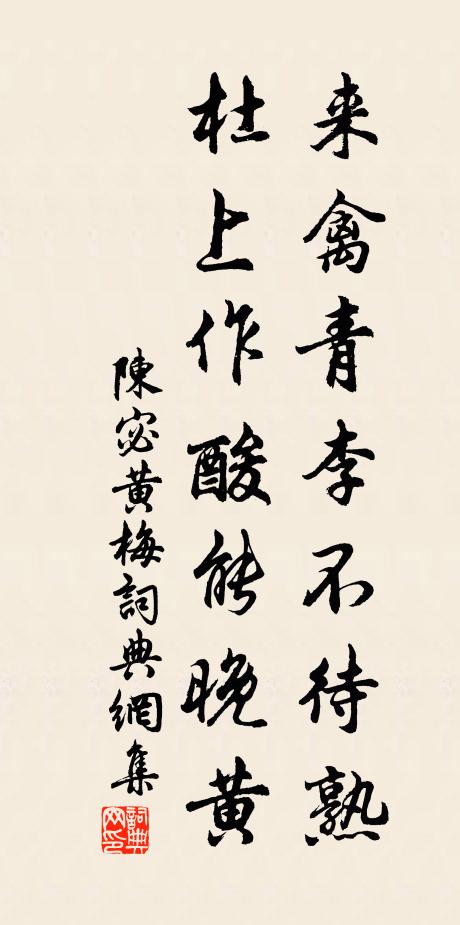 来禽青李不待熟
杜上作酸能晚黄
陳宓黄梅詞典網集
詞典网印